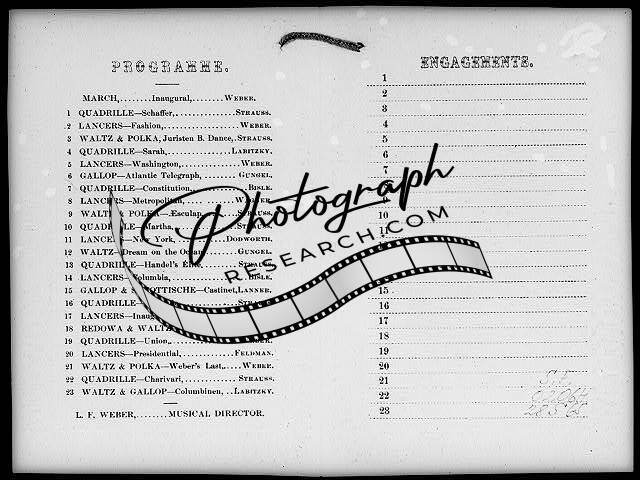 PROGRAMME.
MARCH,........Inaugural,........WEBER.
1 QUADRILLE—Schaffer,................STRAUSS.
2 LANCERS—Fashion,...................WEBER.
3 WALTZ & POLKA, Juristen B. Dance,..STRAUSS.
4 QUADRILLE—Sarah,................LABITZKY.
5 LANCERS—Washington,...............WEBER.
6 GALLOP—Atlantic Telegraph,..........GUNGEL.
7 QUADRILLE—Constitution,.............BISLE.
8 LANCERS—Metropolitan,
9 WALTZ & POLKA—Esculap
10 QUADRILLE—Martha,..............STRAUSS.
11 LANCERS—New York,..........DODWORTH.
12 WALTZ—Dream on the Ocean,.......GUNGEL.
13 QUADRILLE—Handel's
14 LANCERS—Columbia,..............BISLE.
15 GALLOP & SCHOTTISCHE—Castinet,LANNER.
16 QUADRILLE—
17 LANCERS—
18 REDOWA & WALTZ
19 QUADRILLE—Union,
20 LANCERS—Presidential,..............FELDMAN.
21 WALTZ & POLKA—Weber's Last,.....WEBER.
22 QUADRILLE—Charivari,..............STRAUSS.
23 WALTZ & GALLOP—Columbinen,...LABITZKY.
L. F. WEBER,........MUSICAL DIRECTOR.
ENGAGEMENTS.
1
2
3
4
5
6
7
9
10
11
15
16
17
18
19
20
21
22
23
Photograph
RESEARCH.COM